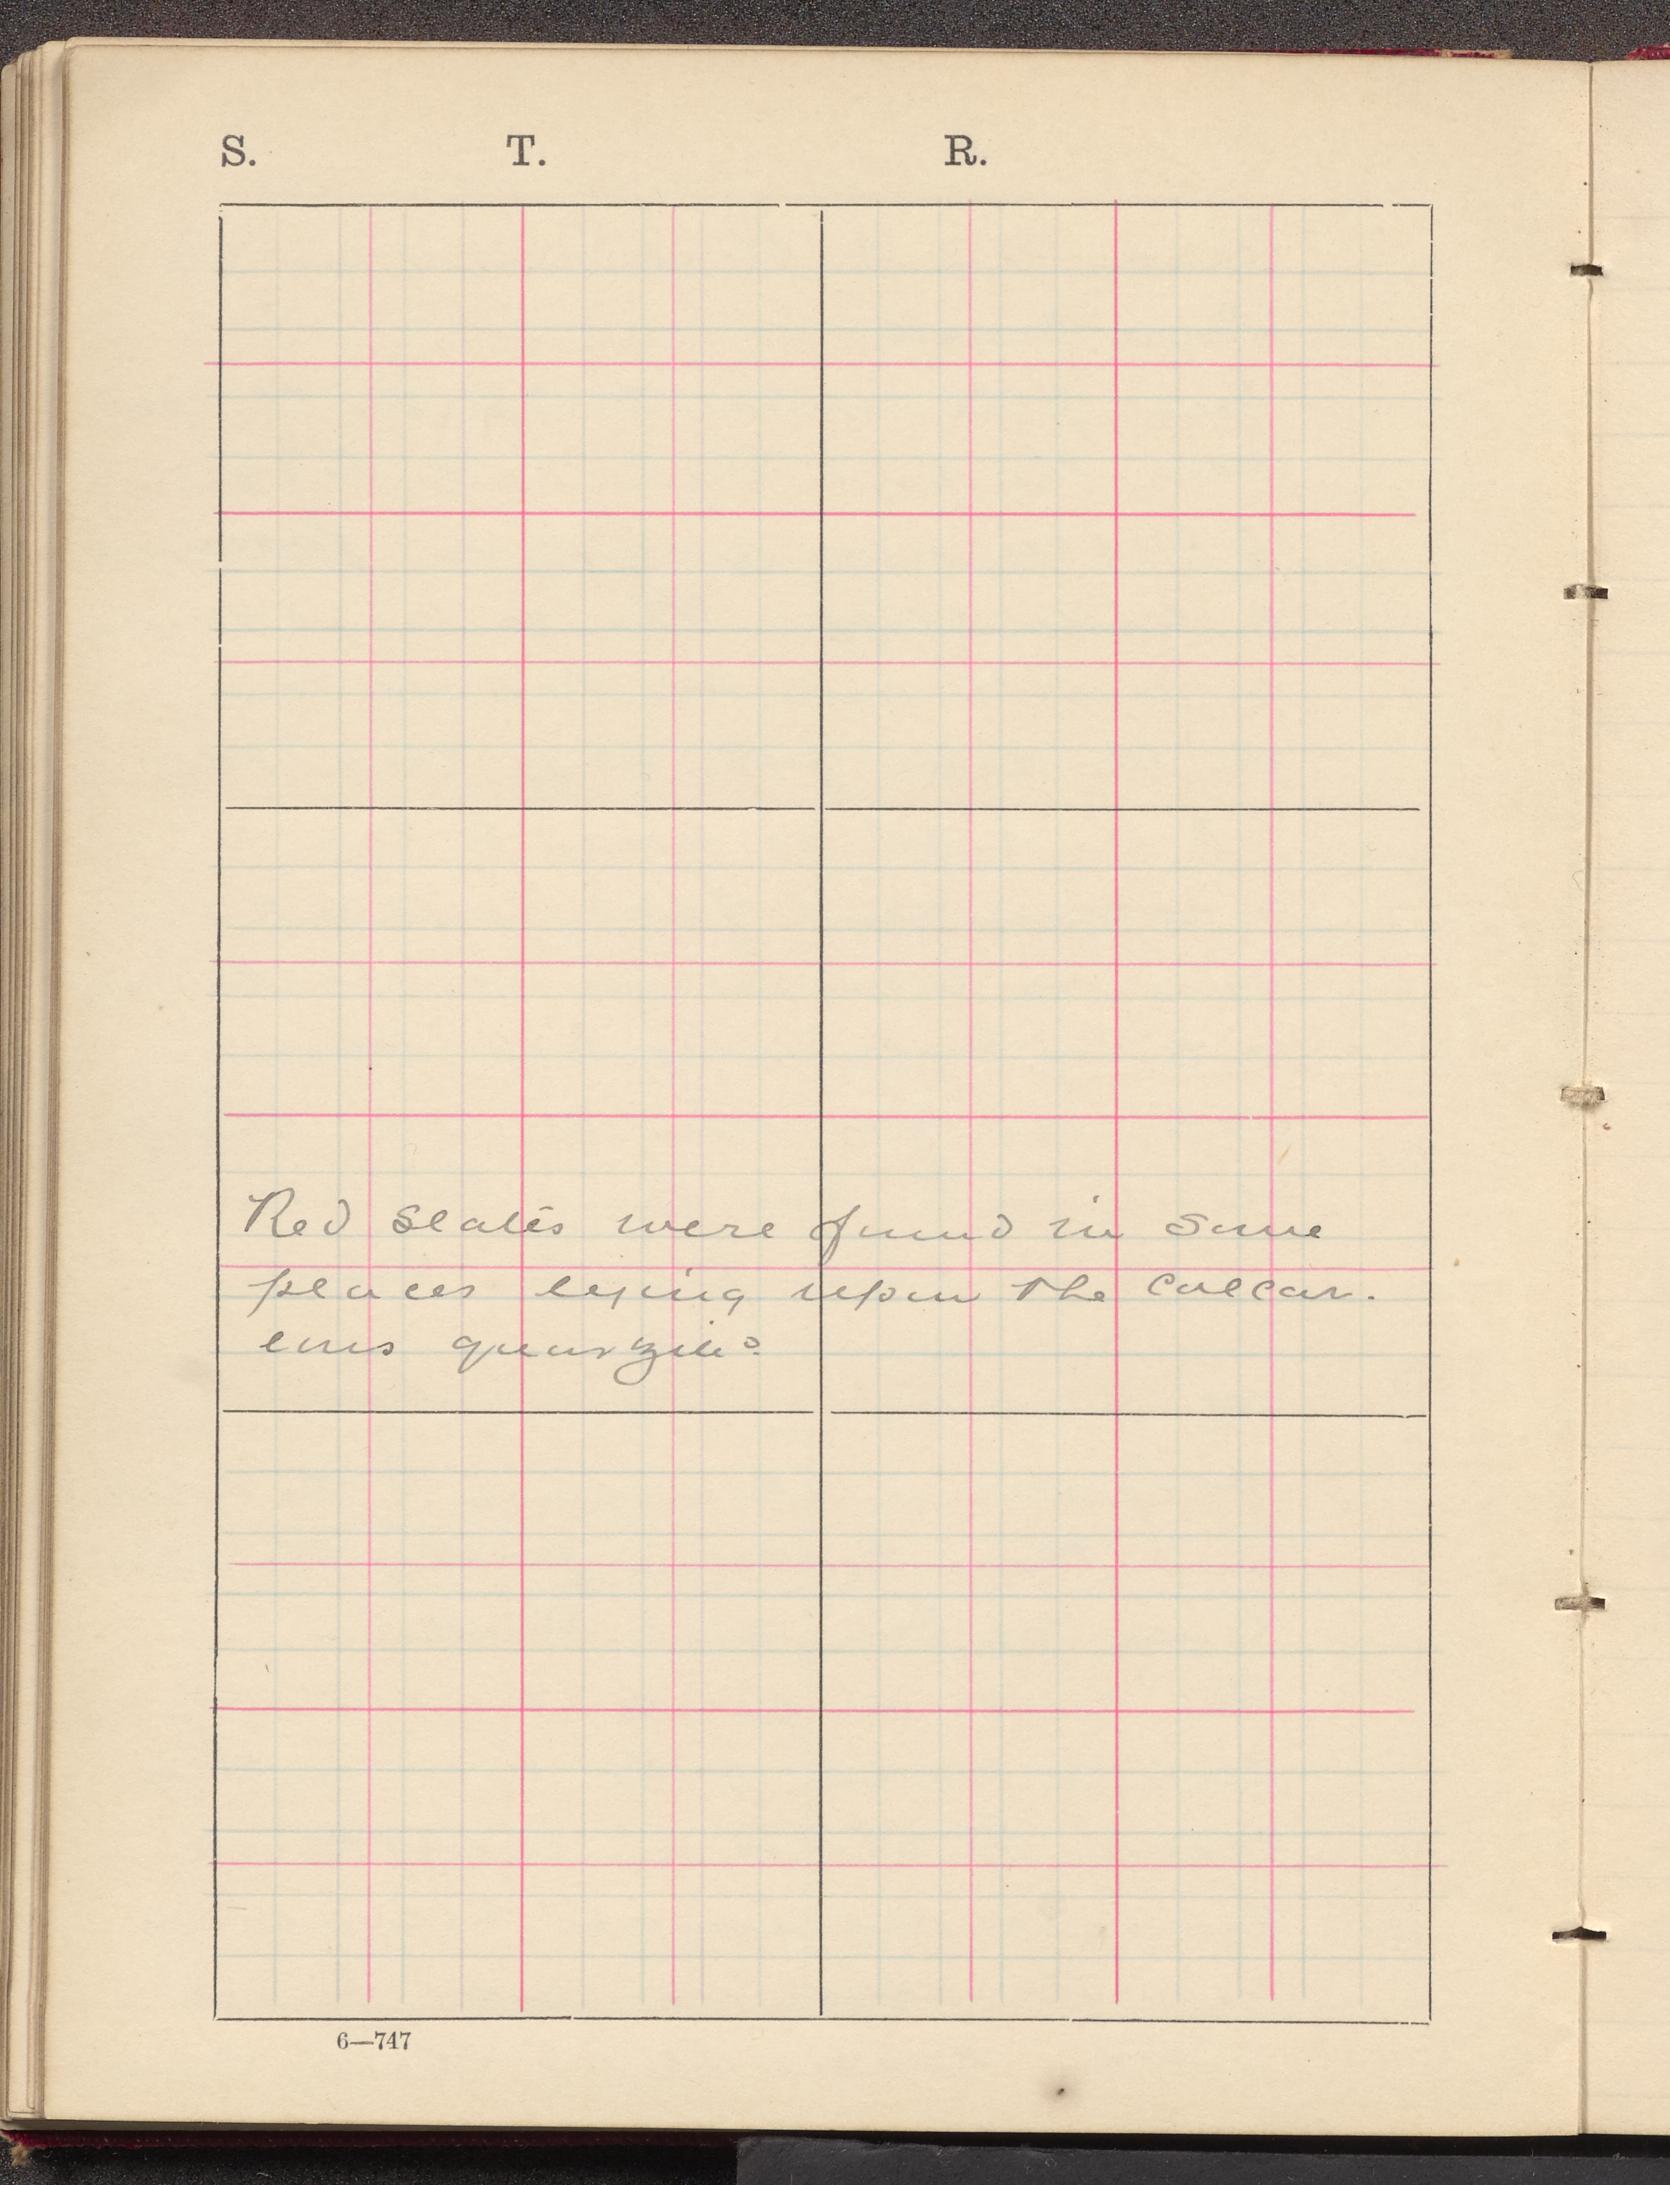 S. T. R.
Red slates were found in some
places lying upon the calcar-
eous quarzite.
6—747